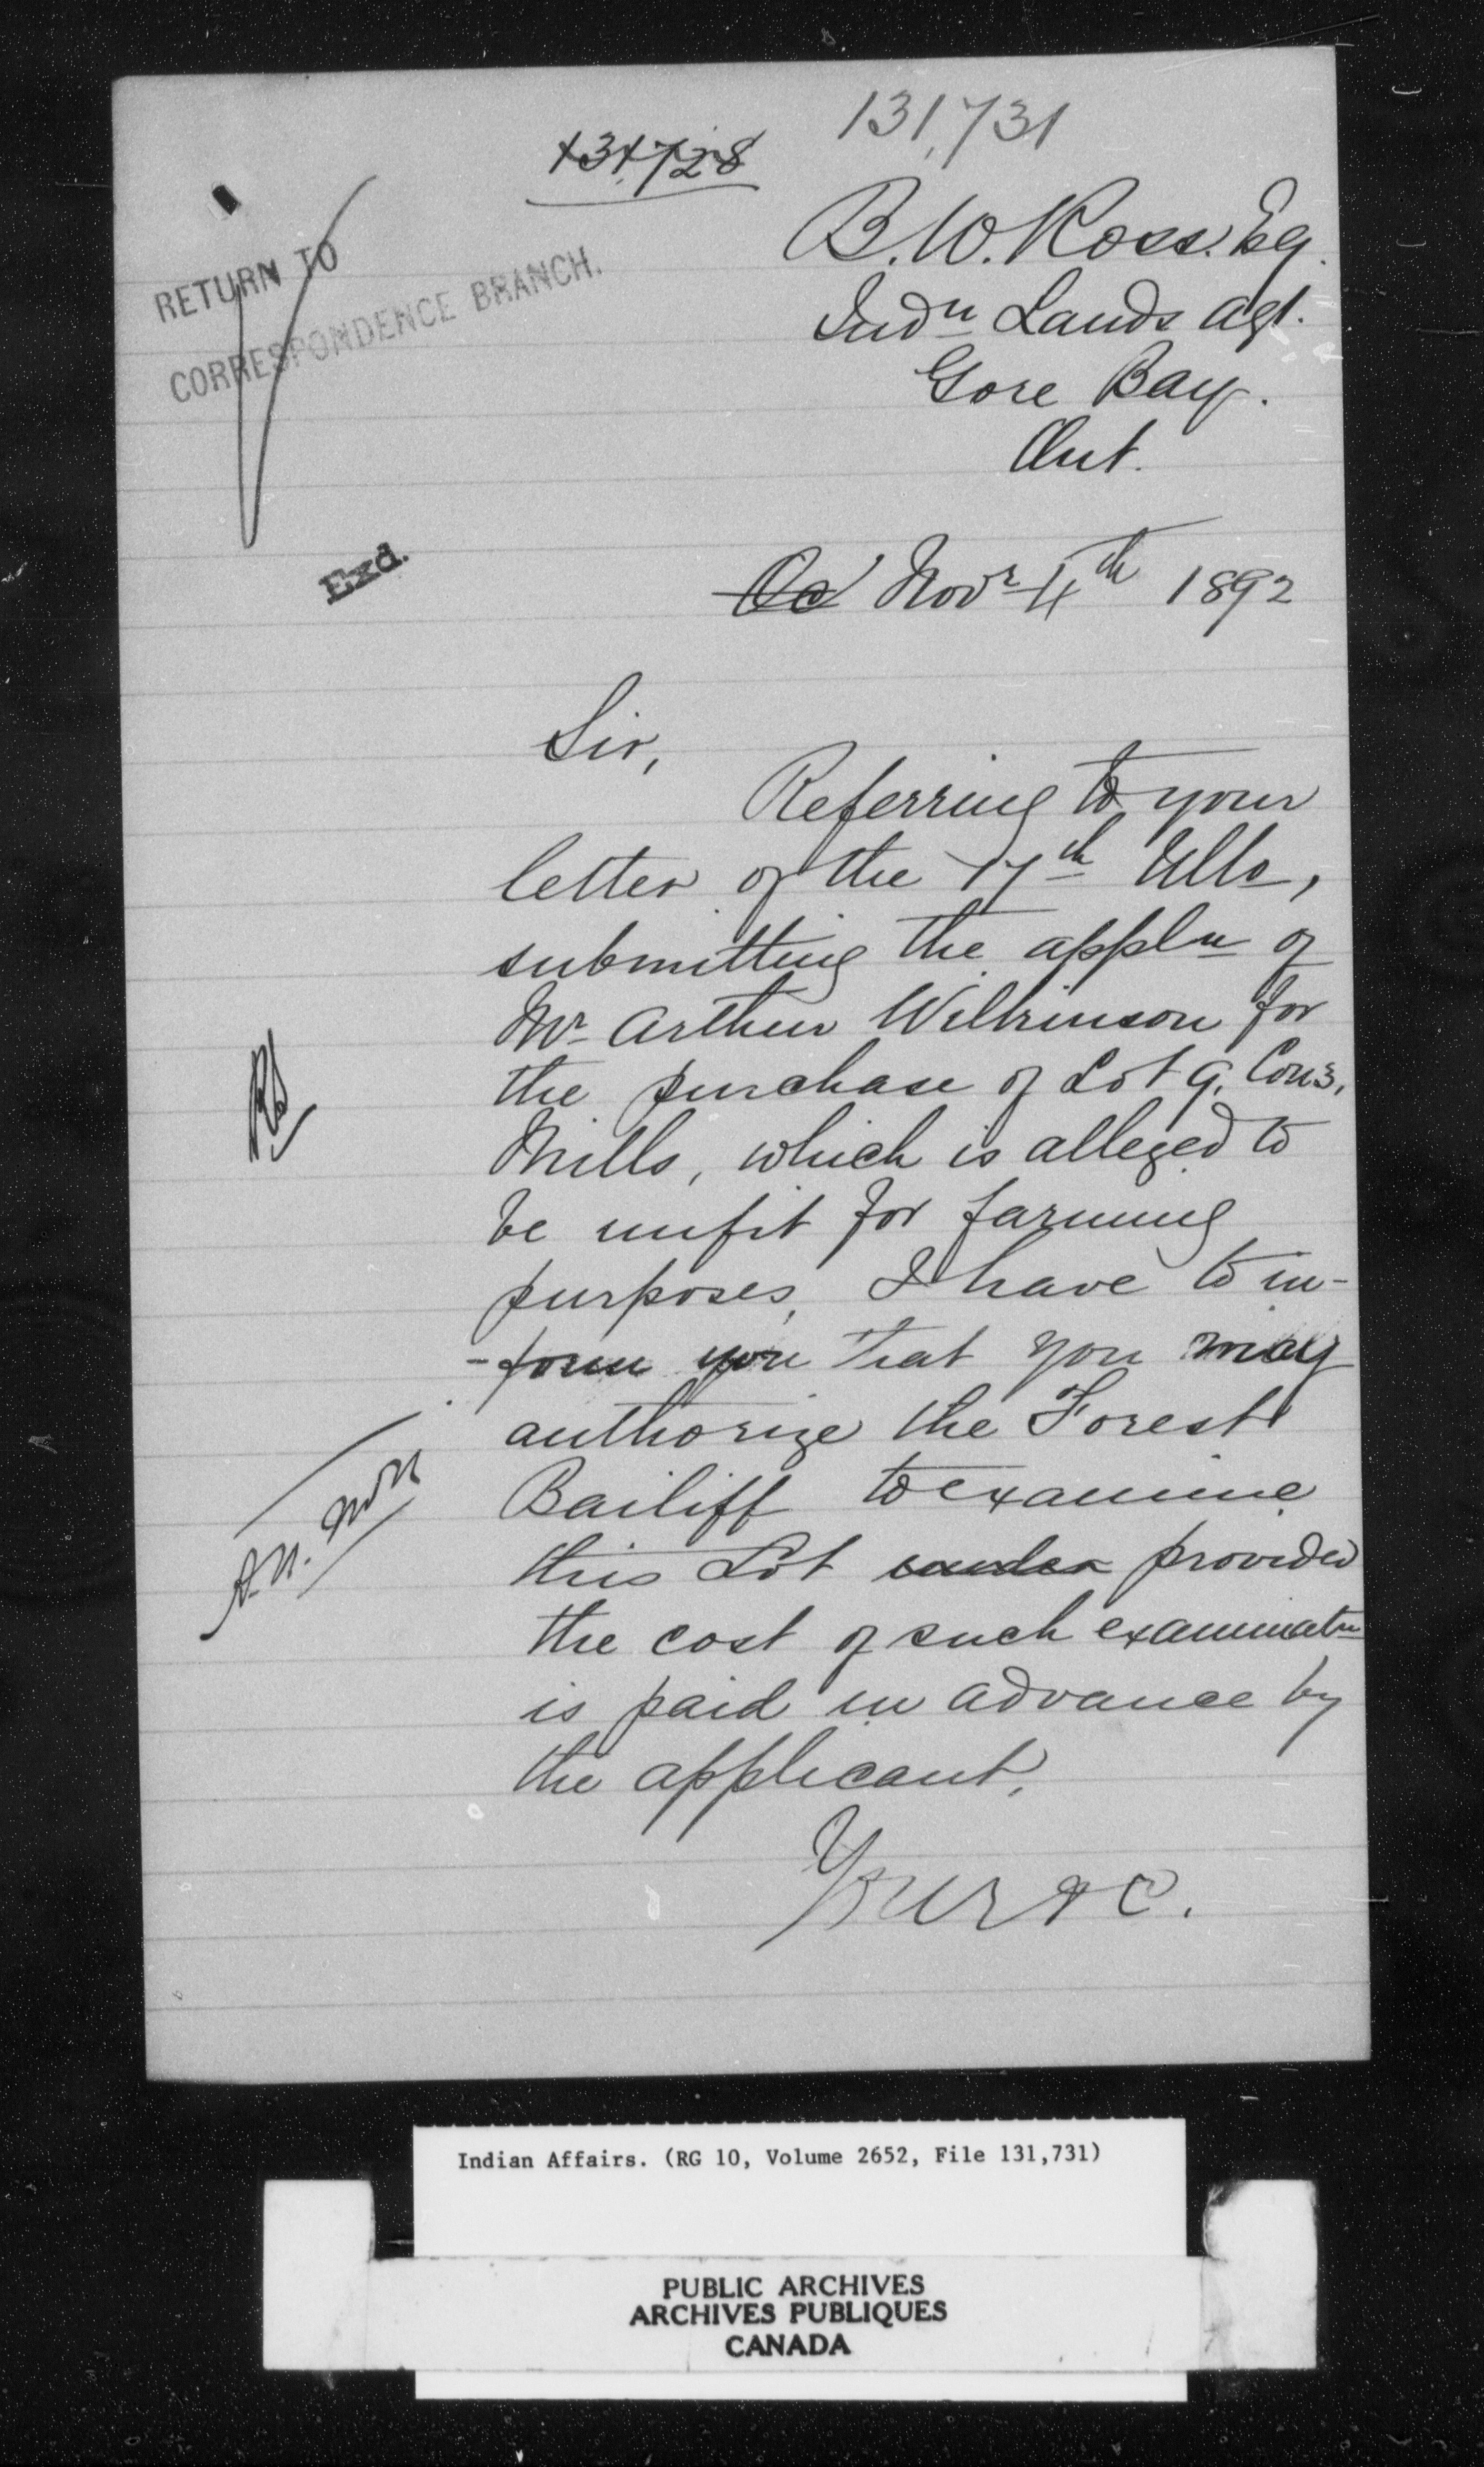 131,731
131,728
B. W. Ross. Esq.
Indn Lands Agt.
Gore Bay.
Ont.
RETURN TO
CORRESPONDENCE BRANCH.
Exd.
Oc Novr 4th 1892
Sir,
Referring to your
letter of the 17th Ulto,
submitting the appln of
Mr Arthur Wilkinson for
the purchase of Lot 9, Con 3,
Mills, which is alleged to
be unfit for farming
purposes, I have to in-
-form you that you may
authorize the Forest
Bailiff to examine
this Lot under provided
the cost of such examinatn
is paid in advance by
the applicant.
Yours &c.
Indian Affairs. (RG 10, Volume 2652, File 131,731)
PUBLIC ARCHIVES
ARCHIVES PUBLIQUES
CANADA